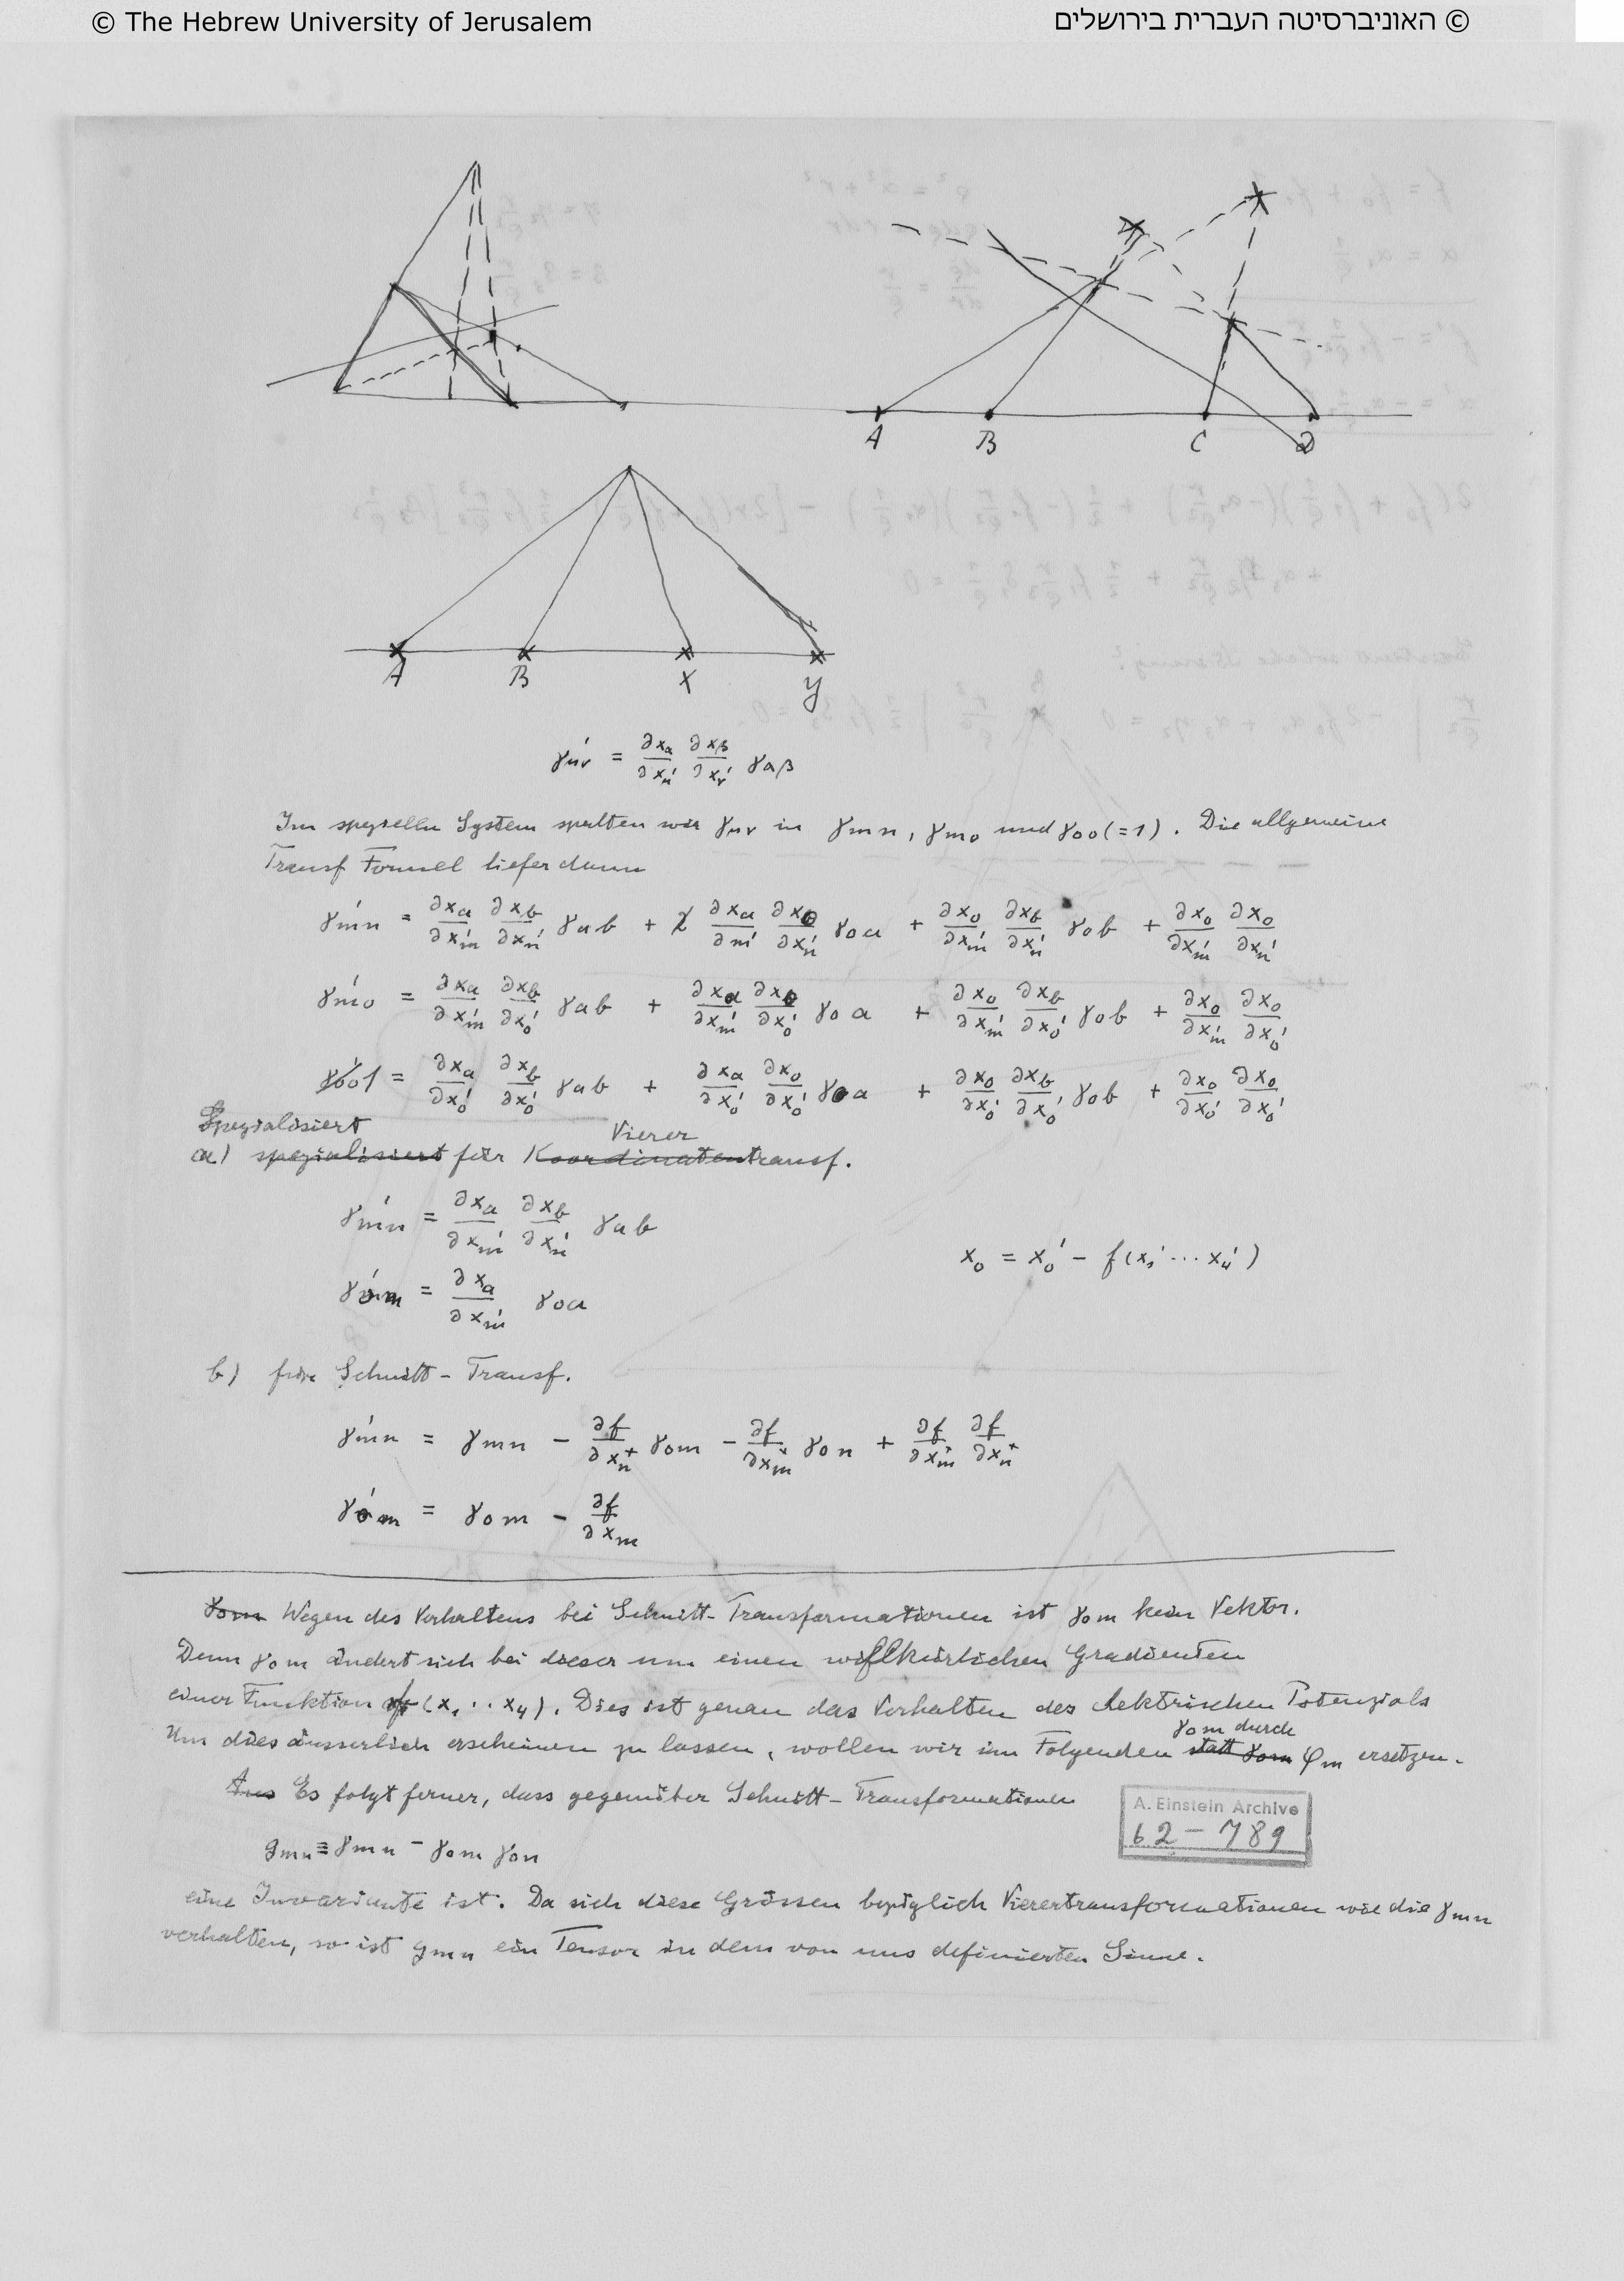 © The Hebrew University of Jerusalem
האוניברסיטה העברית בירושלים ©
A B C D
A B X Y
γ'μν = ∂xα/∂x'μ ∂xβ/∂x'ν γαβ
Im speziellen System spalten wir γμν in γmn, γm0 und γ00 (=1). Die allgemeine
Transf Formel liefer dann
γ'mn = ∂xa/∂x'm ∂xb/∂x'n γab + ∂xa/∂m' ∂x0/∂x'n γ0a + ∂x0/∂x'm ∂xb/∂x'n γ0b + ∂x0/∂x'm ∂x0/∂x'n
γ'm0 = ∂xa/∂x'm ∂xb/∂x'0 γab + ∂xa/∂x'm ∂x0/∂x'0 γ0a + ∂x0/∂x'm ∂xb/∂x'0 γ0b + ∂x0/∂x'm ∂x0/∂x'0
γ'00 1 = ∂xa/∂x'0 ∂xb/∂x'0 γab + ∂xa/∂x'0 ∂x0/∂x'0 γ0a + ∂x0/∂x'0 ∂xb/∂x'0 γ0b + ∂x0/∂x'0 ∂x0/∂x'0
Spezialisiert
a) spezialisiert für Koordinatentransf.
Vierer
γ'mn = ∂xa/∂x'm ∂xb/∂x'n γab
x0 = x'0 - f(x'1 ... x'4)
γ'0m = ∂xa/∂x'm γ0a
b) für Schnitt-Transf.
γ'mn = γmn - ∂f/∂x'n γ0m - ∂f/∂x'm γ0n + ∂f/∂x'm ∂f/∂x'n
γ'0m = γ0m - ∂f/∂xm
γ0m Wegen des Verhaltens bei Schnitt-Transformationen ist γ0m kein Vektor.
Denn γ0m ändert sich bei dieser um einen willkürlichen Gradienten
einer Funktion f(x1 .. x4). Dies ist genau das Verhalten des elektrischen Potenzials
γ0m durch
Um dies äusserlich erscheinen zu lassen, wollen wir im Folgenden statt γ0m φm ersetzen.
Aus Es folgt ferner, dass gegenüber Schnitt-Transformationen
A. Einstein Archive
62-789
gmn ≡ γmn - γ0m γ0n
eine Invariante ist. Da sich diese Grössen bezüglich Vierertransformationen wie die γmn
verhalten, so ist gmn ein Tensor in dem von uns definierten Sinne.